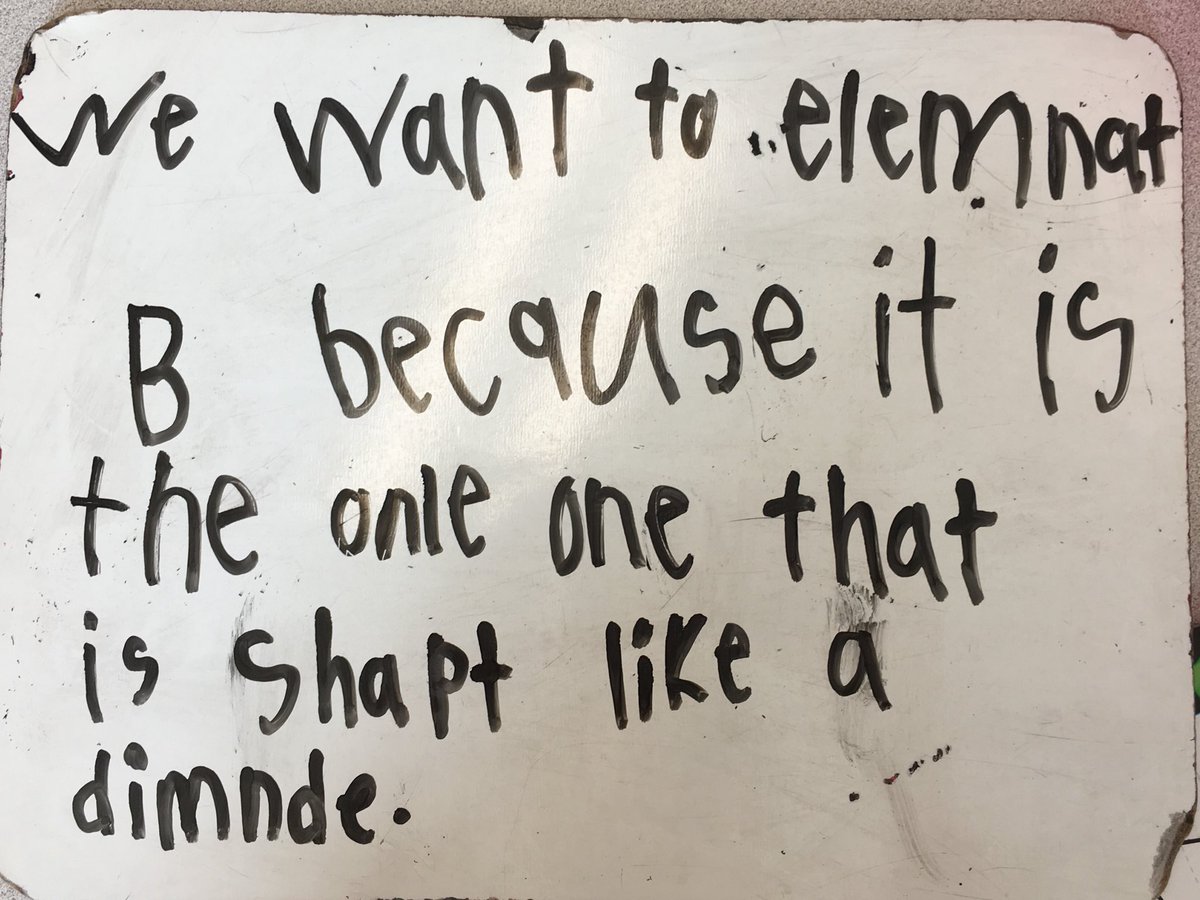 We want to elemnat
B because it is
the onle one that
is shapt like a
dimnde.